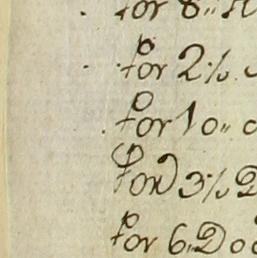 for 8
for 2½
for 10
for 3½ D
for 6 Do